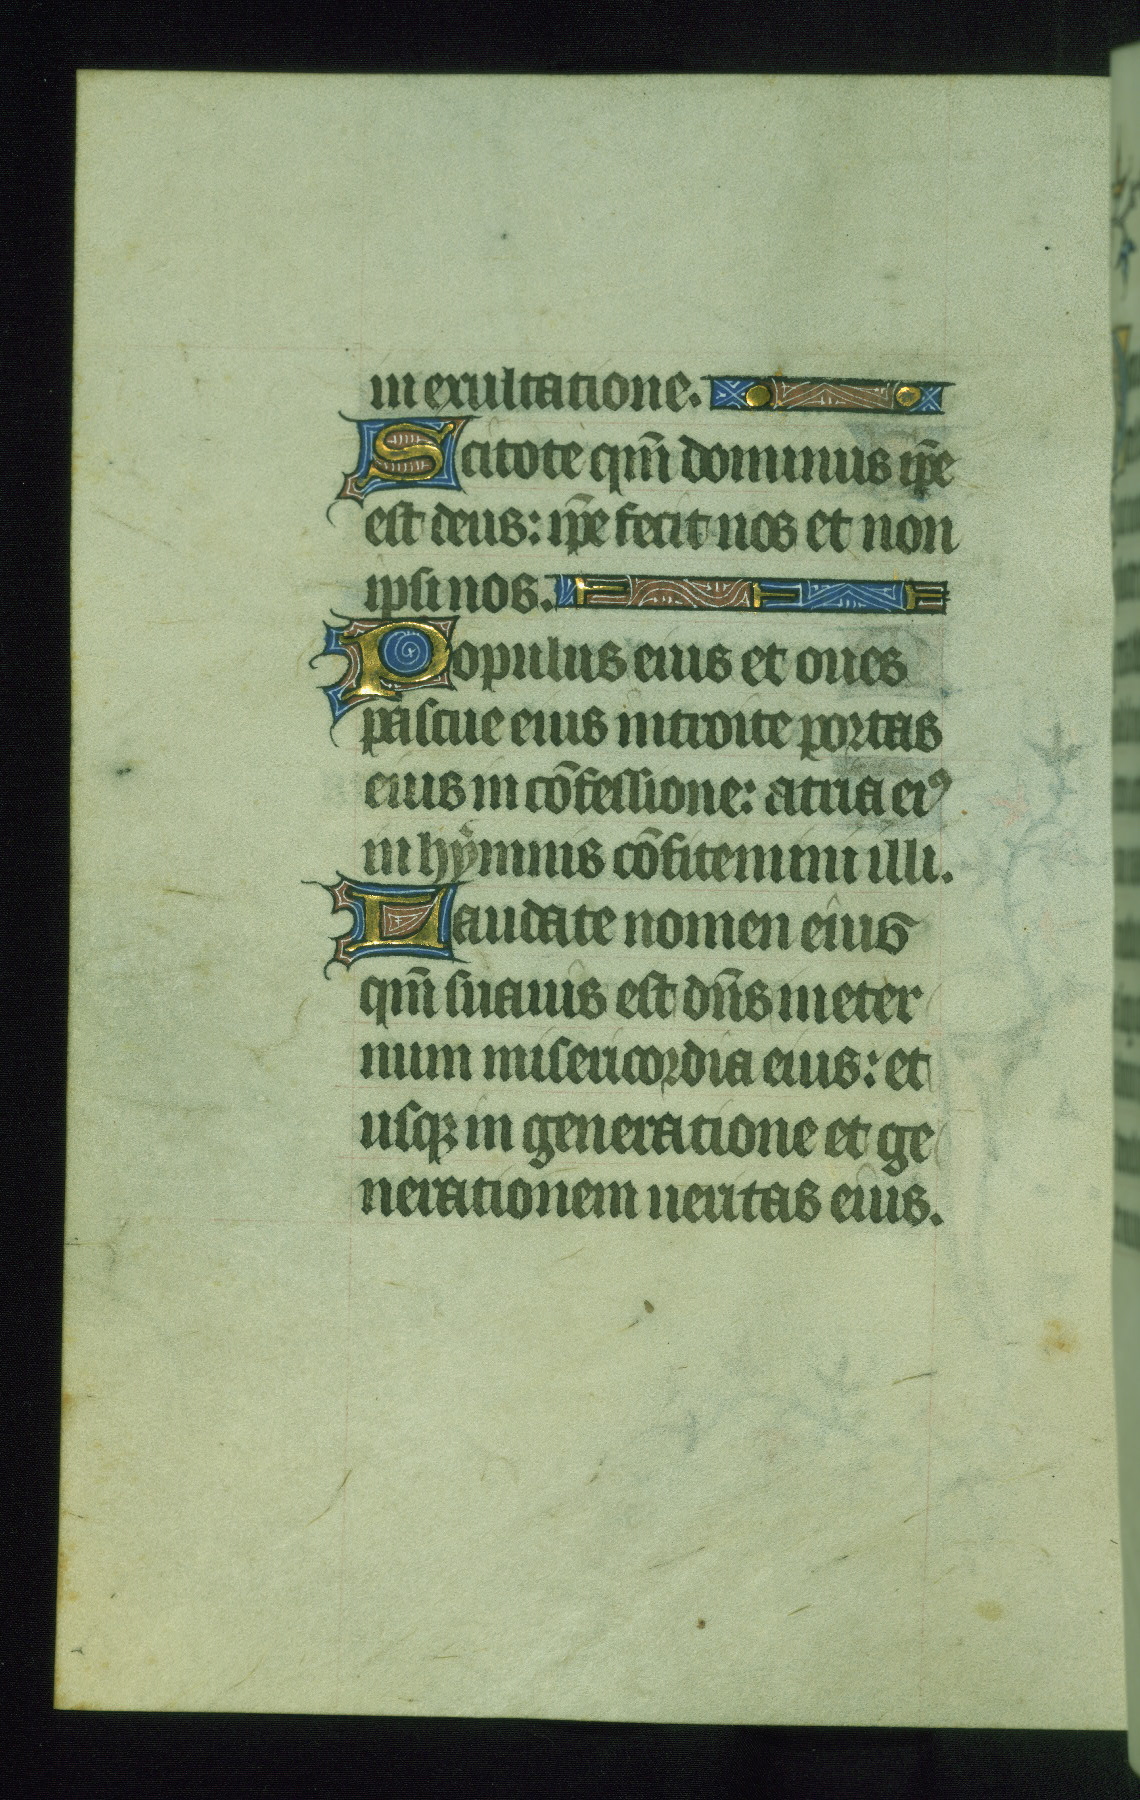 in exultatione.
Scitote qm̄ dominus ip̄e
est deus: ip̄e fecit nos et non
ipsi nos.
Populus eius et oues
pascue eius introite portas
eius in cōfessione: atria eiꝰ
in hẏmnis cōfitemini illi.
Laudate nomen eius
qm̄ suauis est dn̄s in eter
num misericordia eius: et
usqꝫ in generatione et ge
nerationem ueritas eius.